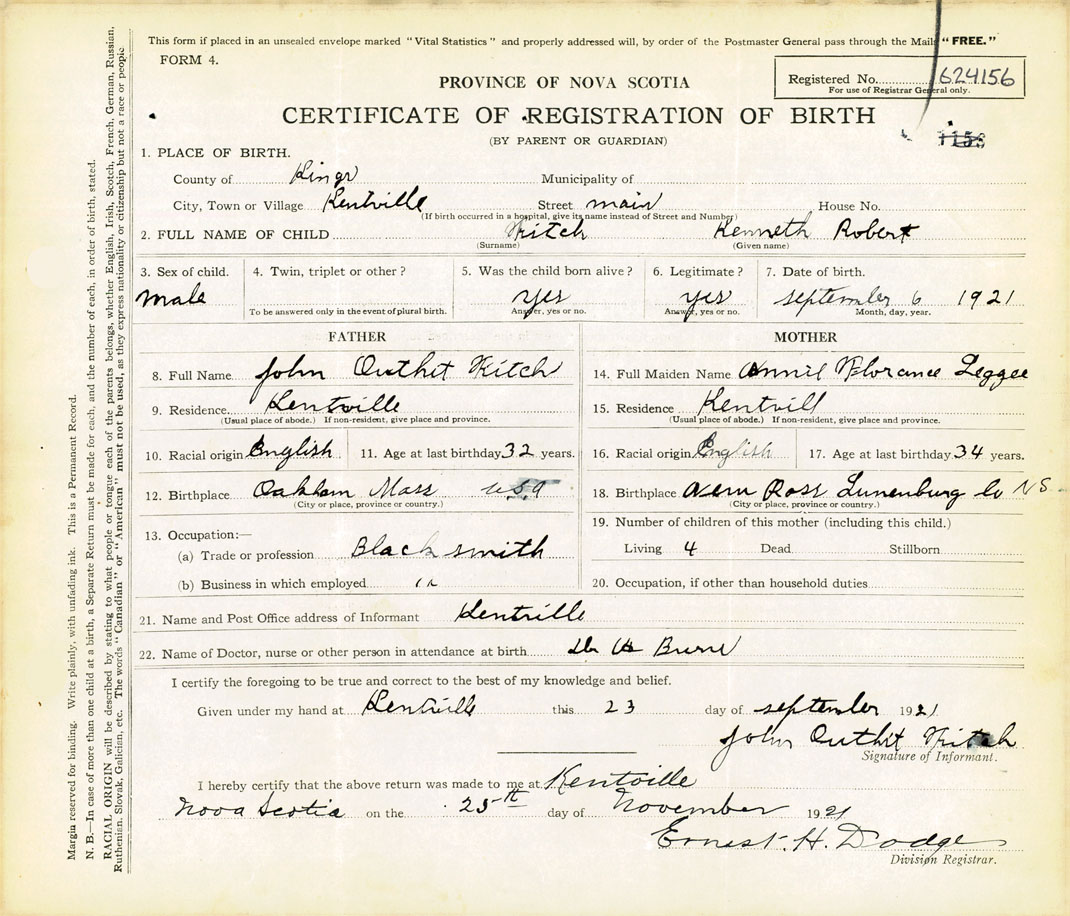 This form if placed in an unsealed envelope marked “Vital Statistics” and properly addressed will, by order of the Postmaster General pass through the Mails “FREE.”
FORM 4.
PROVINCE OF NOVA SCOTIA
Registered No. 624156
For use of Registrar General only.
CERTIFICATE OF REGISTRATION OF BIRTH
(BY PARENT OR GUARDIAN)
1. PLACE OF BIRTH.
County of Kings Municipality of
City, Town or Village Kentville Street main House No.
(If birth occurred in a hospital, give its name instead of Street and Number)
2. FULL NAME OF CHILD Kitch Kenneth Robert
(Surname) (Given name)
3. Sex of child. 4. Twin, triplet or other? 5. Was the child born alive? 6. Legitimate? 7. Date of birth.
male yes yes september 6 1921
To be answered only in the event of plural birth. Answer, yes or no. Answer, yes or no. Month, day, year.
FATHER
8. Full Name John Outhit Kitch
9. Residence. Kentville
(Usual place of abode.) If non-resident, give place and province.
10. Racial origin English 11. Age at last birthday 32 years.
12. Birthplace Oakham Mass USA
(City or place, province or country.)
13. Occupation:—
(a) Trade or profession Black smith
(b) Business in which employed "
MOTHER
14. Full Maiden Name Annie Florance Leggee
15. Residence Kentvill
(Usual place of abode.) If non-resident, give place and province.
16. Racial origin English 17. Age at last birthday 34 years.
18. Birthplace New Ross Lunenburg Co NS
(City or place, province or country.)
19. Number of children of this mother (including this child.)
Living 4 Dead Stillborn
20. Occupation, if other than household duties
21. Name and Post Office address of Informant Kentville
22. Name of Doctor, nurse or other person in attendance at birth Dr
I certify the foregoing to be true and correct to the best of my knowledge and belief.
Given under my hand at Kentville this 23 day of september 1921
John Outhit Kitch
Signature of Informant.
I hereby certify that the above return was made to me at Kentville
Nova Scotia on the 25th day of November 1921
Ernest. H. Dodge
Division Registrar.
Margin reserved for binding. Write plainly, with unfading ink. This is a Permanent Record.
N. B.—In case of more than one child at a birth, a Separate Return must be made for each, and the number of each, in order of birth, stated.
RACIAL ORIGIN will be described by stating to what people or tongue each of the parents belongs, whether English, Irish, Scotch, French, German, Russian,
Ruthenian, Slovak, Galician, etc. The words “Canadian” or “American” must not be used, as they express nationality or citizenship but not a race or people